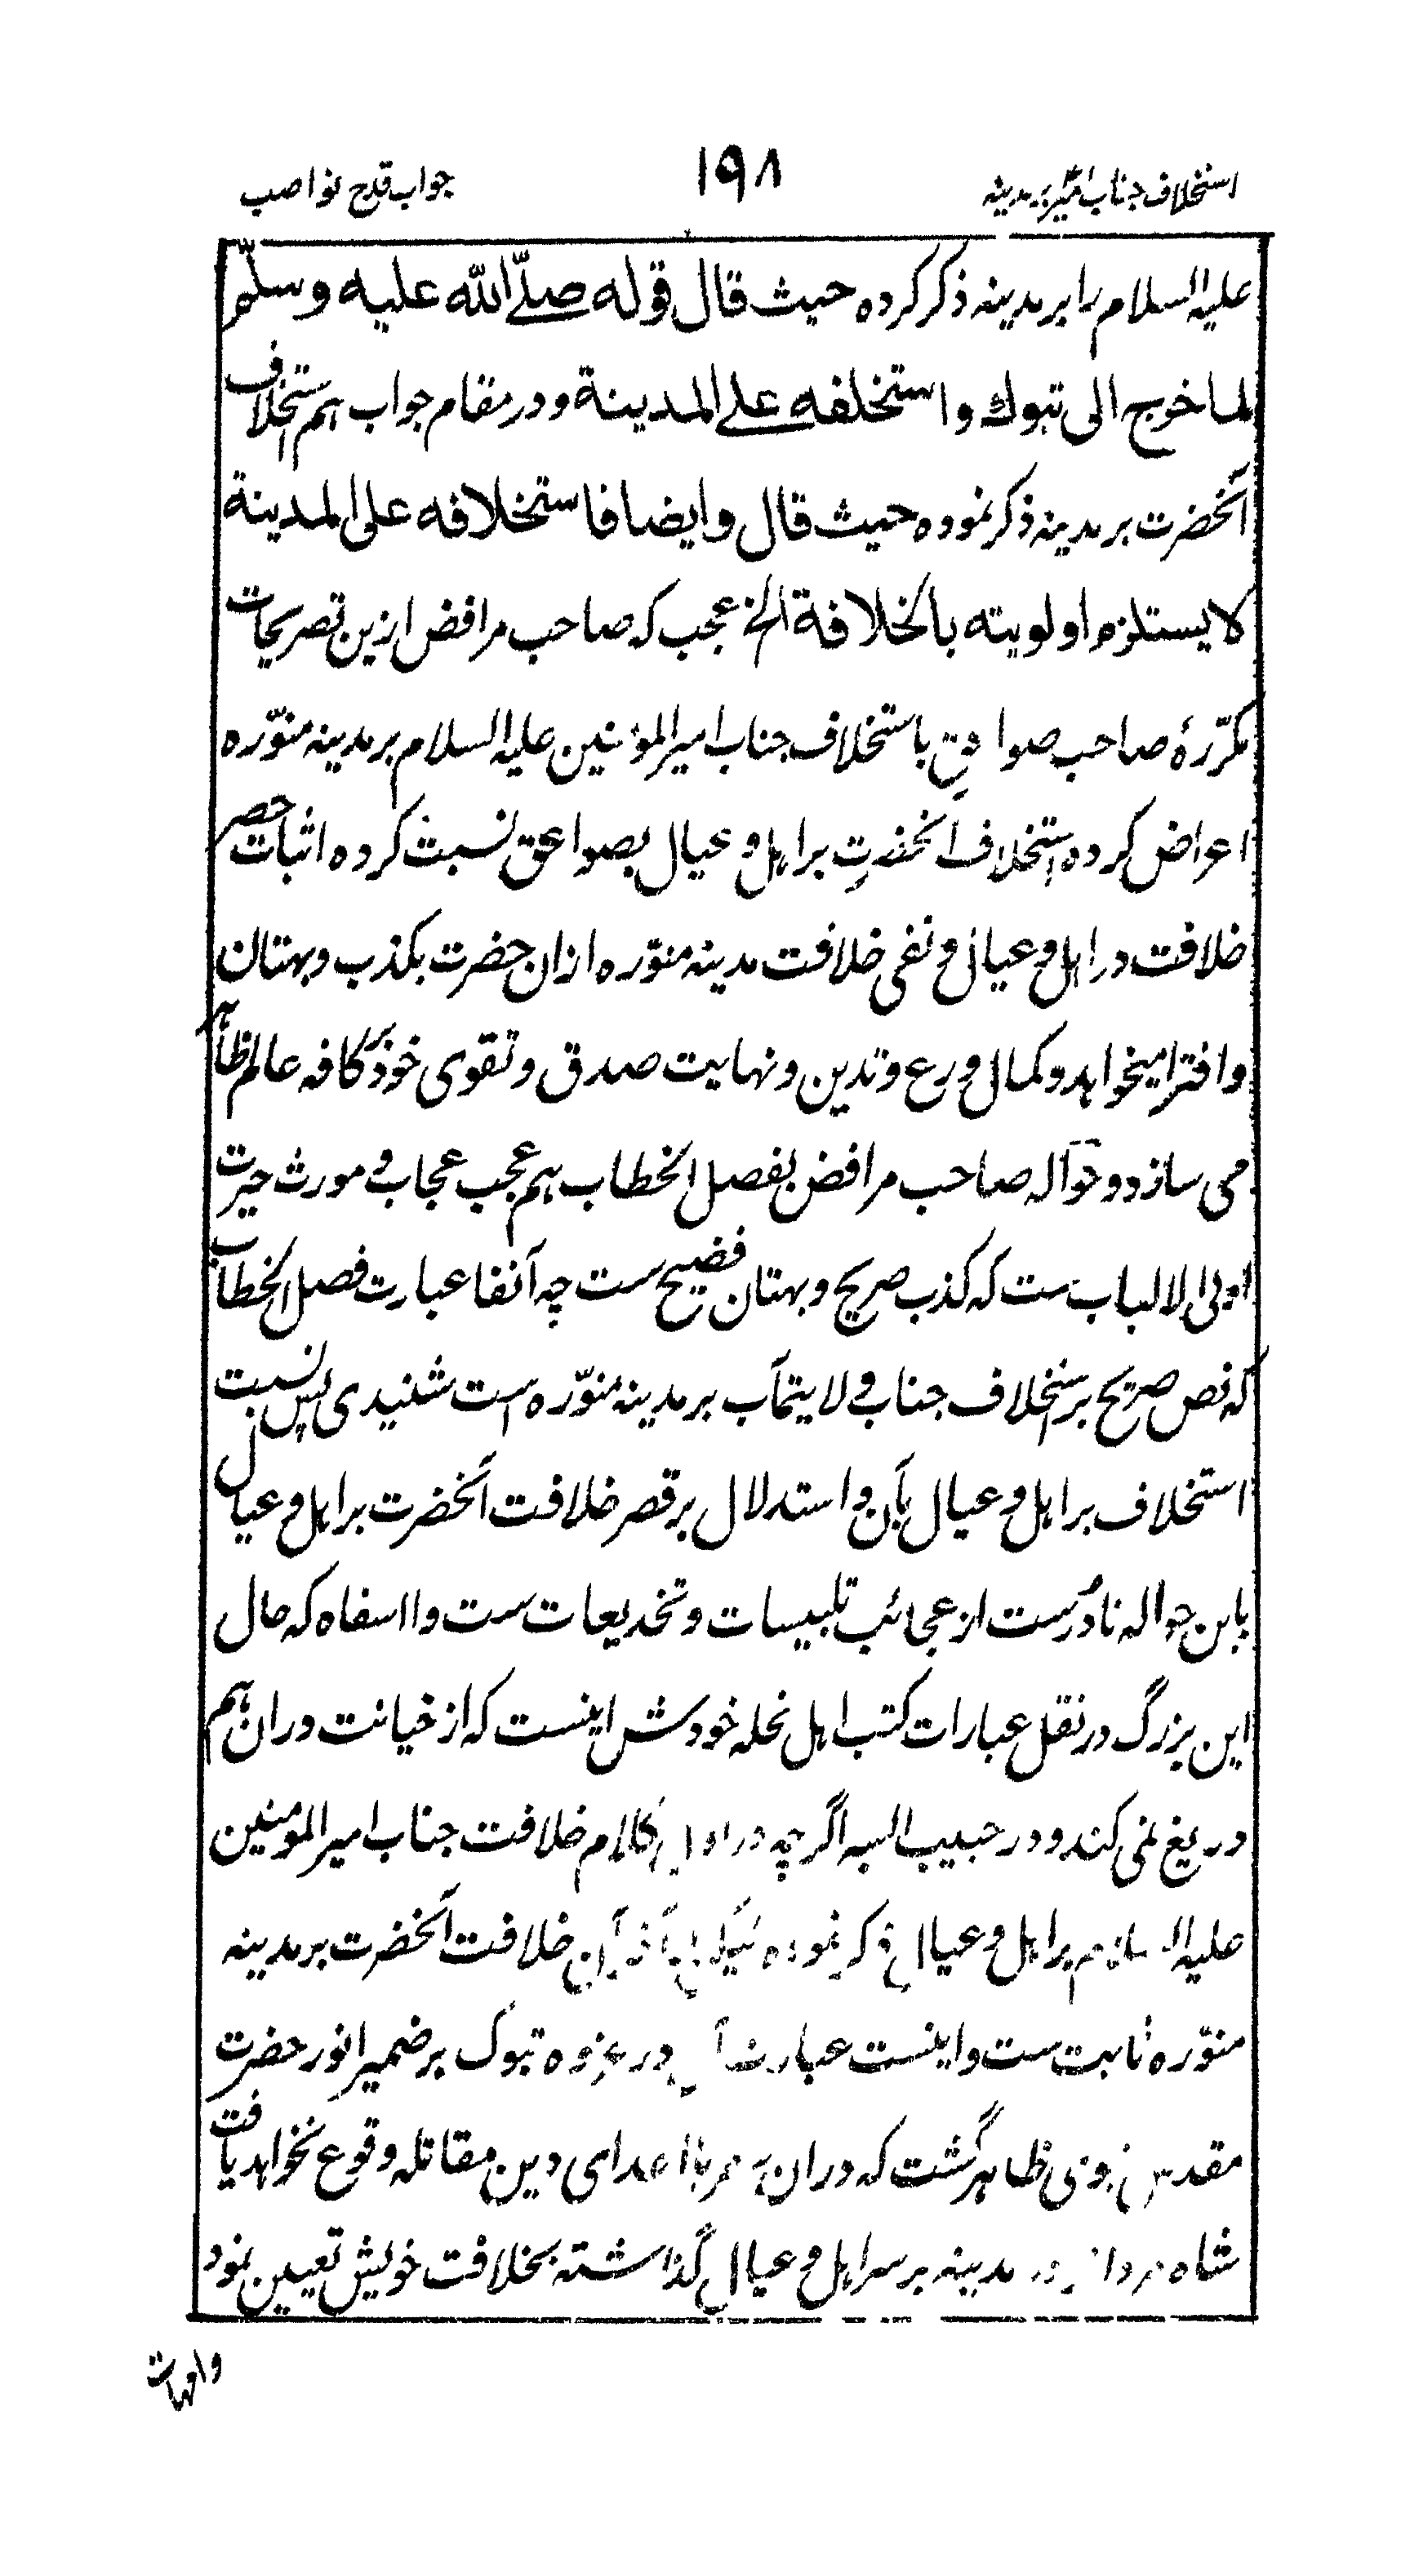 استخلاف جناب امیر بر مدینه
۱۹۸
جواب قدح نواصب
علیه السلام را بر مدینه ذکر کرده حیث قال قوله صلّے الله علیه وسلّم
لما خرج الی تبوك واستخلفه علے المدینة و در مقام جواب هم استخلاف
آنحضرت بر مدینه ذکر نموده حیث قال وایضا فاستخلافه علی المدینة
لا یستلزم اولویته بالخلافة الخ عجب که صاحب مرافض ازین تصریحات
مکرّرهٔ صاحب صواعق باستخلاف جناب امیر المؤمنین علیه السلام بر مدینه منوّره
اعراض کرده استخلاف آنحضرت بر اهل و عیال بصواعق نسبت کرده اثبات حصر
خلافت در اهل و عیال و نفی خلافت مدینه منوّره ازان حضرت بکذب و بهتان
و افترا میخواهد و کمال ورع و تدین و نهایت صدق و تقوی خود بر کافه عالم ظاهر
می سازد و حواله صاحب مرافض بفصل الخطاب هم عجب عجاب و مورث حیرت
اولی الالباب ست که کذب صریح و بهتان فضیح ست چه آنفا عبارت فصل الخطاب
که نص صریح بر استخلاف جناب ولایتمآب بر مدینه منوّره است شنیدی پس نسبت
استخلاف بر اهل و عیال بآن و استدلال بر قصر خلافت آنحضرت بر اهل و عیال
باین حواله نادُرست از عجائب تلبیسات و تخدیعات ست وا اسفاه که حال
این بزرگ در نقل عبارات کتب اهل نحله خودش اینست که از خیانت دران هم
دریغ نمی کند و در حبیب السیر اگرچه در اول کلام خلافت جناب امیر المومنین
علیه السلام بر اهل و عیال ذکر نموده لیکن خلافت آنحضرت بر مدینه
منوّره ثابت ست و اینست عبارت آن در غزوه تبوک بر ضمیر انور حضرت
مقدس نبوی ظاهر گشت که دران سفر با اعدای دین مقاتله وقوع نخواهد یافت
شاه مردان در مدینه بر سر اهل و عیال گذاشته بخلافت خویش تعیین نمود
وامهات